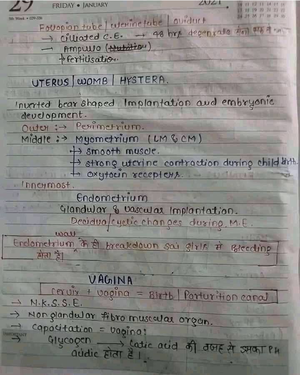 29 FRIDAY • JANUARY 2021
Fallopian tube | uterine tube | oviduct
→ Ciliated C.E. → 48 hrs degenerate
→ Ampulla (Nutrition)
→ fertilisation
UTERUS | WOMB | HYSTERA.
Inverted pear shaped Implantation and embryonic
development.
Outer :→ Perimetrium.
Middle :→ Myometrium (LM & CM)
↳ Smooth muscle.
↳ strong uterine contraction during child birth
↳ Oxytocin receptors.
Innermost
Endometrium
Glandular & vascular Implantation.
Decidua/cyclic changes during M.C
wall
Endometrium के ही breakdown से girls में Bleeding
होता है।
VAGINA
Cervix + vagina = Birth | Parturition canal
→ N.K.S.S.E.
→ Non glandular fibro muscular organ.
→ Capacitation = vagina
→ Glycogen → Latic acid की वजह से इसका PH
acidic होता है।